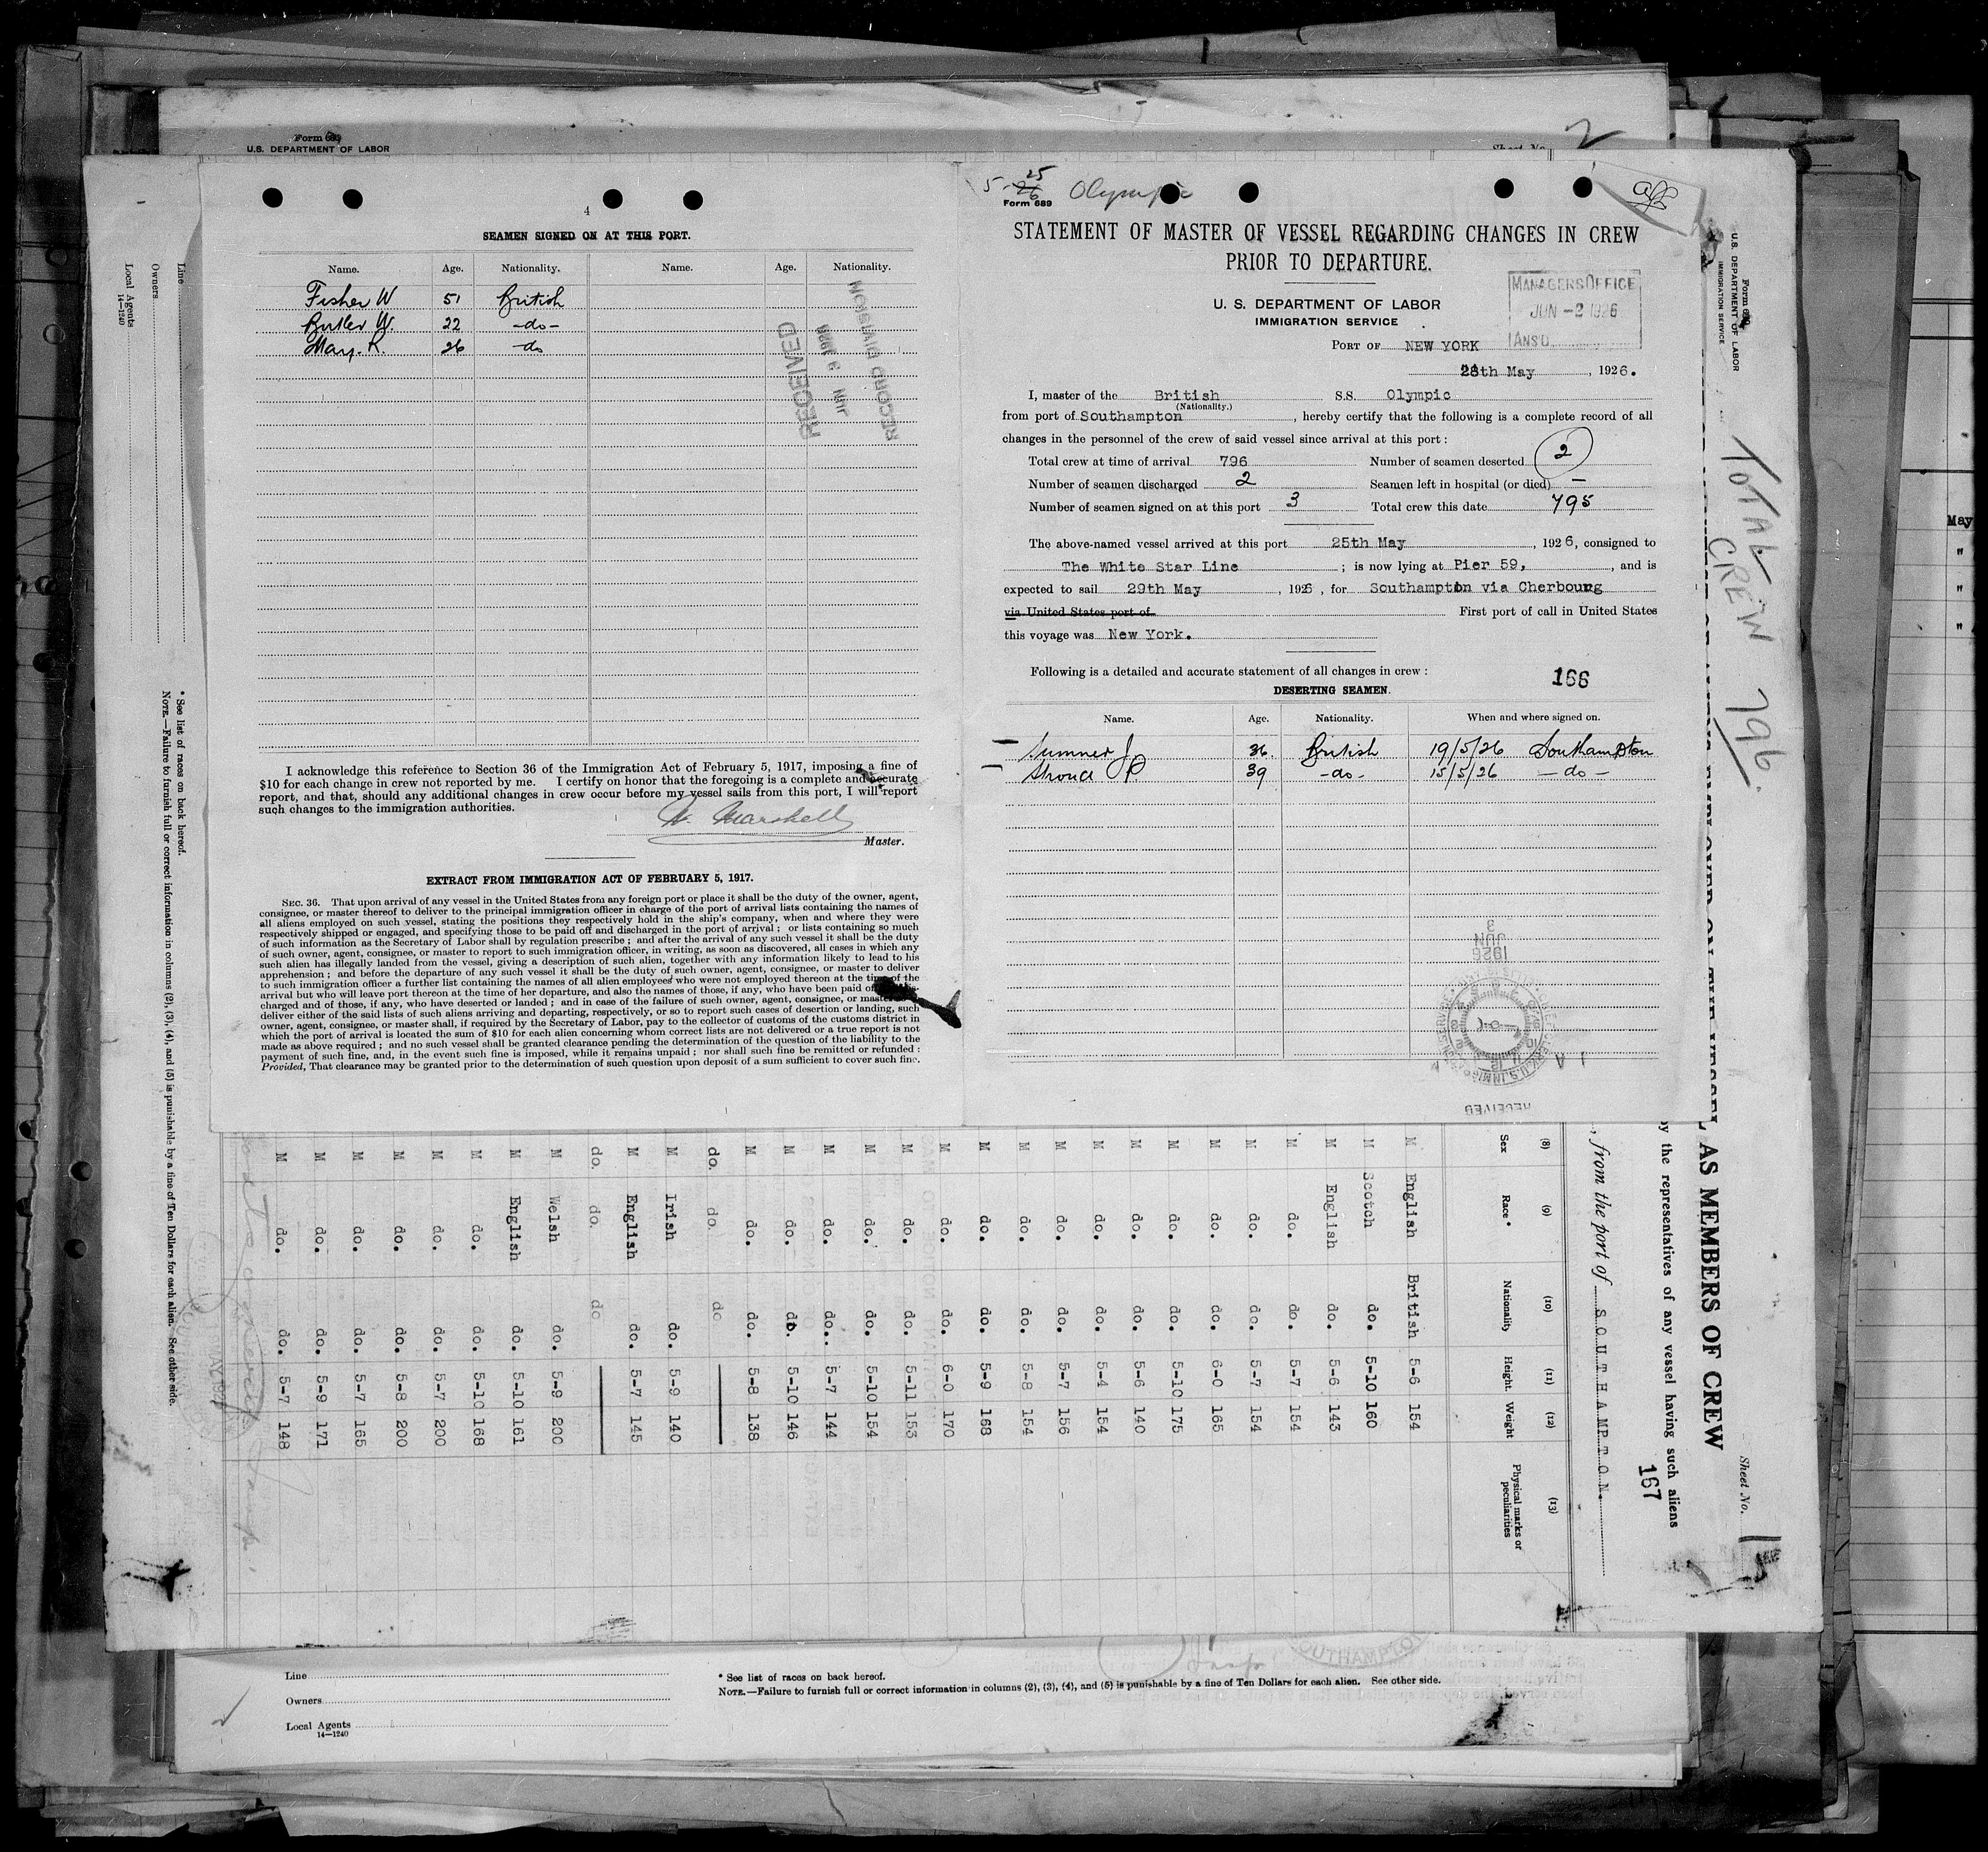 Form 689
U.S. DEPARTMENT OF LABOR
Sheet No.
2
4
SEAMEN SIGNED ON AT THIS PORT.
Name. Age. Nationality. Name. Age. Nationality.
Fisher W 51 British
Butler W. 22 -do-
May. R. 26 -do
RECEIVED
JUN 3 1926
RECORD DIVISION
I acknowledge this reference to Section 36 of the Immigration Act of February 5, 1917, imposing a fine of
$10 for each change in crew not reported by me. I certify on honor that the foregoing is a complete and accurate
report, and that, should any additional changes in crew occur before my vessel sails from this port, I will report
such changes to the immigration authorities.
W. Marshall
Master.
EXTRACT FROM IMMIGRATION ACT OF FEBRUARY 5, 1917.
SEC. 36. That upon arrival of any vessel in the United States from any foreign port or place it shall be the duty of the owner, agent,
consignee, or master thereof to deliver to the principal immigration officer in charge of the port of arrival lists containing the names of
all aliens employed on such vessel, stating the positions they respectively hold in the ship's company, when and where they were
respectively shipped or engaged, and specifying those to be paid off and discharged in the port of arrival; or lists containing so much
of such information as the Secretary of Labor shall by regulation prescribe; and after the arrival of any such vessel it shall be the duty
of such owner, agent, consignee, or master to report to such immigration officer, in writing, as soon as discovered, all cases in which any
such alien has illegally landed from the vessel, giving a description of such alien, together with any information likely to lead to his
apprehension; and before the departure of any such vessel it shall be the duty of such owner, agent, consignee, or master to deliver
to such immigration officer a further list containing the names of all alien employees who were not employed thereon at the time of the
arrival but who will leave port thereon at the time of her departure, and also the names of those, if any, who have been paid off
charged and of those, if any, who have deserted or landed; and in case of the failure of such owner, agent, consignee, or master
deliver either of the said lists of such aliens arriving and departing, respectively, or so to report such cases of desertion or landing, such
owner, agent, consignee, or master shall, if required by the Secretary of Labor, pay to the collector of customs of the customs district in
which the port of arrival is located the sum of $10 for each alien concerning whom correct lists are not delivered or a true report is not
made as above required; and no such vessel shall be granted clearance pending the determination of the question of the liability to the
payment of such fine, and, in the event such fine is imposed, while it remains unpaid; nor shall such fine be remitted or refunded:
Provided, That clearance may be granted prior to the determination of such question upon deposit of a sum sufficient to cover such fine.
5-26 25 Olympic
Form 689
STATEMENT OF MASTER OF VESSEL REGARDING CHANGES IN CREW
PRIOR TO DEPARTURE.
U. S. DEPARTMENT OF LABOR
IMMIGRATION SERVICE
MANAGERS OFFICE
JUN -2 1926
ANS'D
PORT OF NEW YORK
28th May, 1926.
I, master of the British S.S. Olympic
(Nationality.)
from port of Southampton, hereby certify that the following is a complete record of all
changes in the personnel of the crew of said vessel since arrival at this port:
Total crew at time of arrival 796 Number of seamen deserted 2
Number of seamen discharged 2 Seamen left in hospital (or died) —
Number of seamen signed on at this port 3 Total crew this date 795
The above-named vessel arrived at this port 25th May, 1926, consigned to
The White Star Line; is now lying at Pier 59, , and is
expected to sail 29th May, 1926, for Southampton via Cherbourg
via United States port of First port of call in United States
this voyage was New York.
Following is a detailed and accurate statement of all changes in crew:
166
DESERTING SEAMEN.
Name. Age. Nationality. When and where signed on.
Sumner J 36. British 19/5/26 Southampton
39 -do- 15/5/26 -do-
JUN 3 1926
RECEIVED
Form 689
U.S. DEPARTMENT OF LABOR
IMMIGRATION SERVICE
TOTAL CREW 796.
AS MEMBERS OF CREW
Sheet No. 15
by the representatives of any vessel having such aliens
167
, from the port of SOUTHAMPTON.
(8) (9) (10) (11) (12) (13)
Sex Race* Nationality Height. Weight Physical marks or peculiarities
M English British 5-6 154
M Scotch do. 5-10 160
M English do. 5-6 143
M do. do. 5-7 154
M do. do. 5-7 154
M do. do. 6-0 165
M do. do. 5-10 175
M do. do. 5-6 140
M do. do. 5-4 154
M do. do. 5-7 156
M do. do. 5-8 154
M do. do. 5-9 168
M do. do. 6-0 170
M do. do. 5-11 153
M do. do. 5-10 154
M do. do.. 5-7 144
M do. do. 5-10 146
M do. do. 5-8 138
do. do. do
M Irish do. 5-9 140
M English do. 5-7 145
do. do. do
M Welsh do. 5-9 200
M English do. 5-10 161
M do. do. 5-10 168
M do. do. 5-7 200
M do. do. 5-8 200
M do. do. 5-7 165
M do. do. 5-9 171
M do. do. 5-7 148
Line
Owners
Local Agents
14—1240
* See list of races on back hereof.
NOTE.—Failure to furnish full or correct information in columns (2), (3), (4), and (5) is punishable by a fine of Ten Dollars for each alien. See other side.
Line
Owners
Local Agents
14—1240
* See list of races on back hereof.
NOTE.—Failure to furnish full or correct information in columns (2), (3), (4), and (5) is punishable by a fine of Ten Dollars for each alien. See other side.
SOUTHAMPTON
May
"
"
"